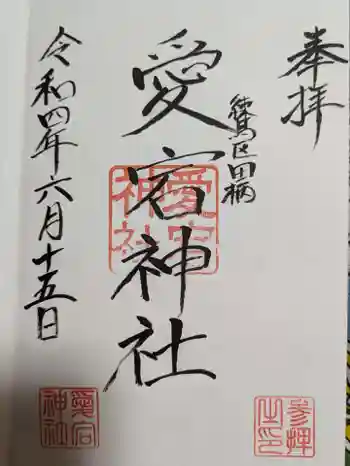 奉拝
練馬区田柄
愛宕神社
令和四年六月十五日
愛宕神社
愛宕神社
参拝之印